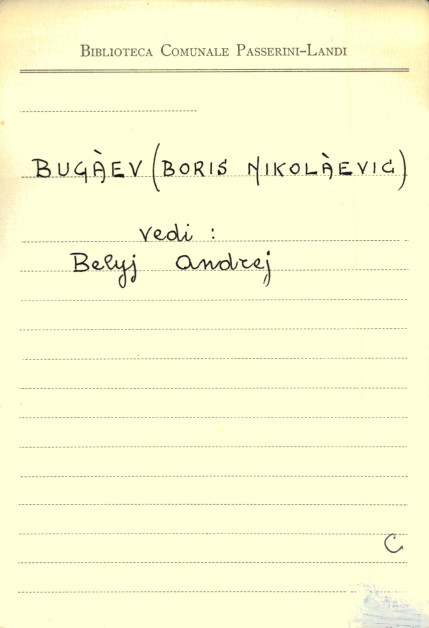 BIBLIOTECA COMUNALE PASSERINI-LANDI
BUGÀEV (BORIS NIKOLÀEVIC)
vedi :
Belyj Andrej
C